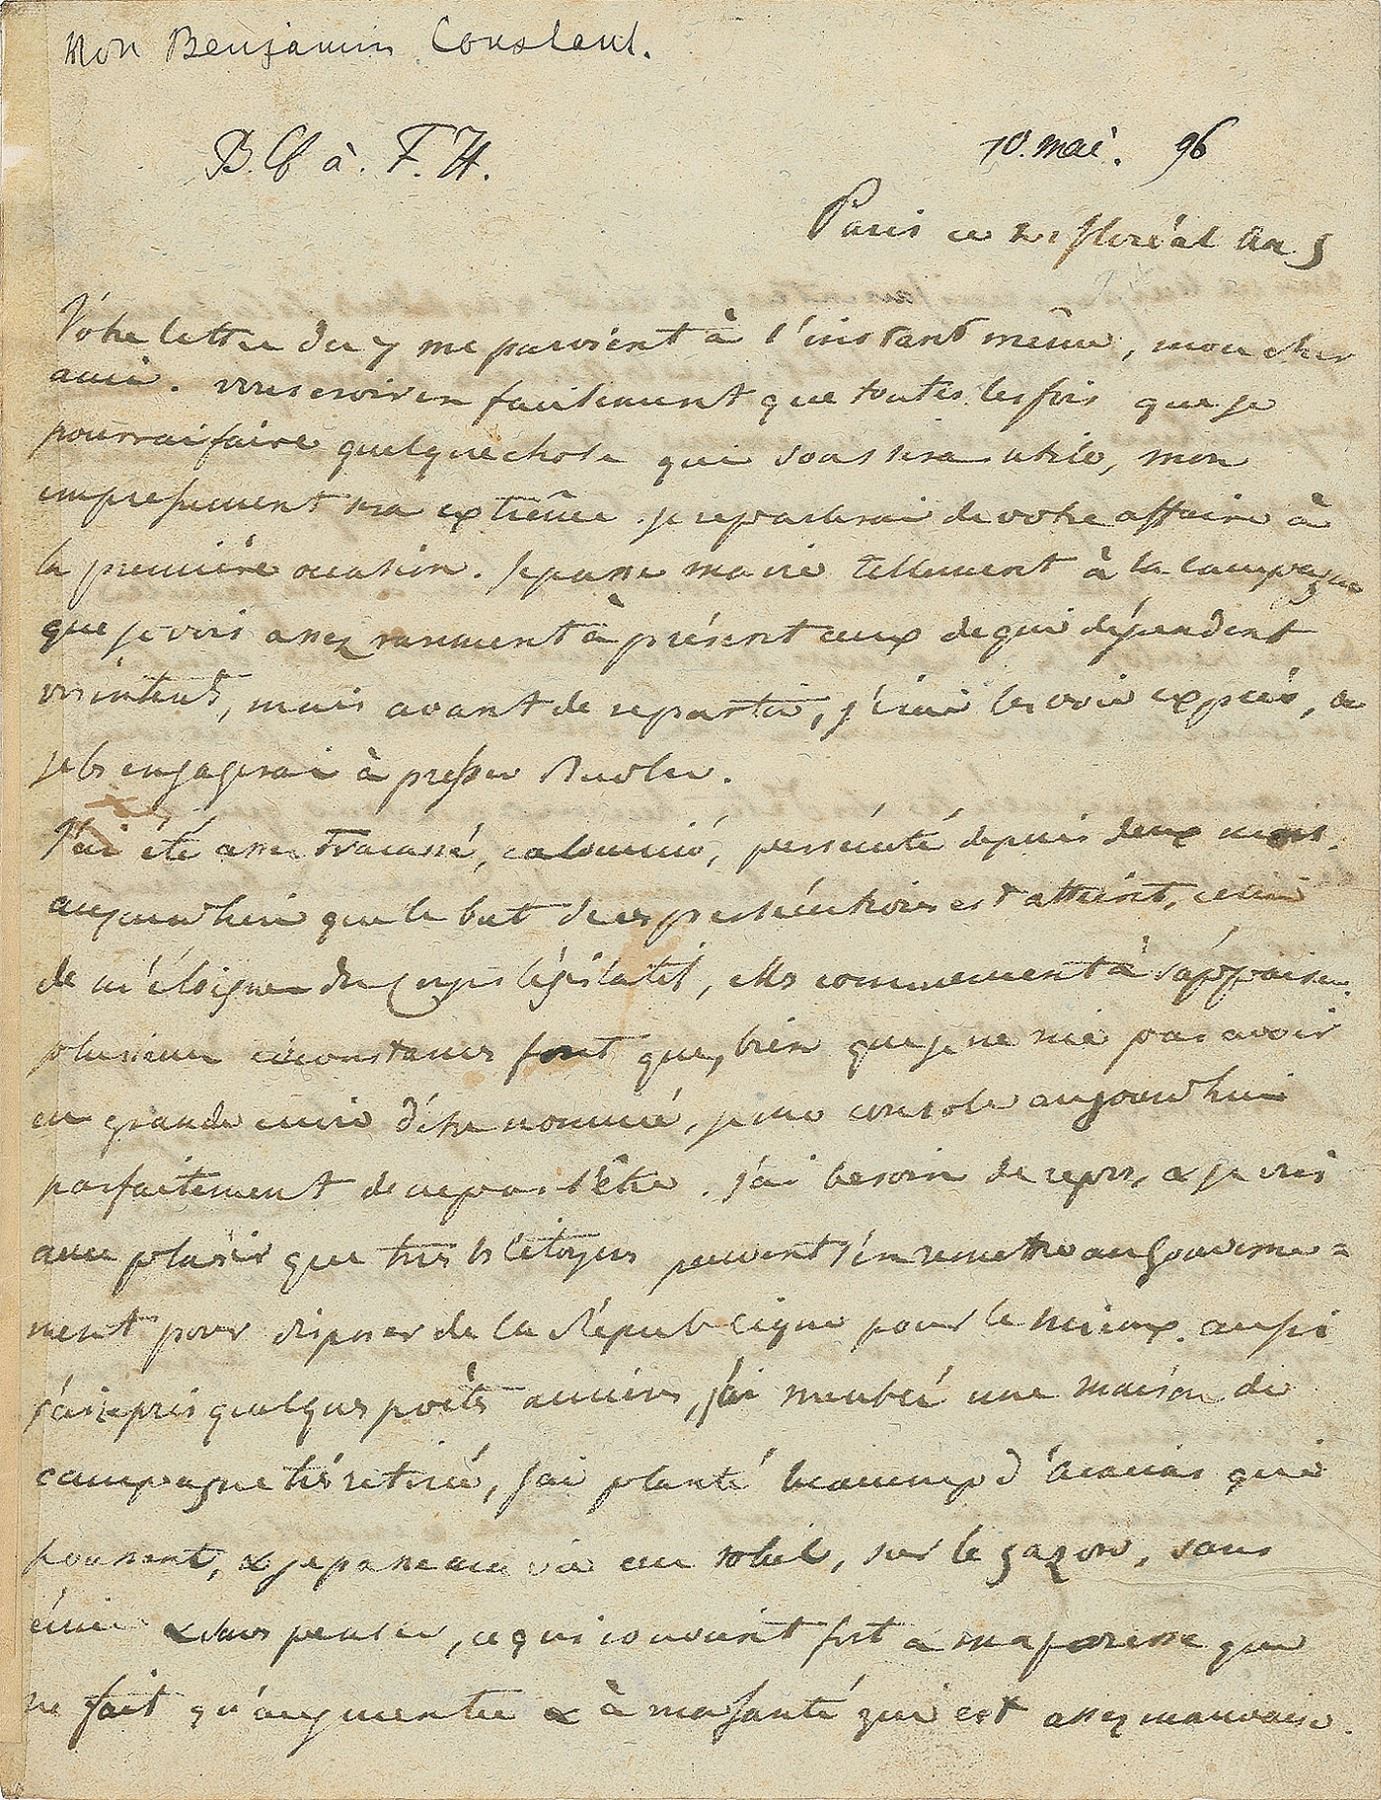 Mon Benjamin Constant.
B. C. à. F. H.
10. mai. 96
Paris ce 21 floréal An 5
Votre lettre du 7 me parvient à l'instant même, mon cher
ami. vous croirez facilement que toutes les fois que je
pourrai faire quelque chose qui vous sera utile, mon
empressement sera extrême. je reparlerai de votre affaire à
la première occasion. Je passe ma vie tellement à la campagne
que je vois assez rarement à présent ceux de qui dépendent
vos intérêts, mais avant de repartir, j'irai les voir exprès, &
je les engagerai à presser Rewler.
J'ai été assez tracassé, calomnié, persécuté depuis deux mois.
aujourdhui que le but de ces persécutions est atteint, celui
de m'éloigner du Corps législatif, elles commencent à s'appaiser.
plusieurs circonstances font que, bien que je ne nie pas avoir
eu grande envie d'être nommé, je me console aujourdhui
parfaitement de ne pas l'être. j'ai besoin de repos, & je vois
avec plaisir que tous les Citoyens peuvent s'en remettre au gouverne=
ment pour disposer de la République pour le mieux. aussi
j'ai repris quelques poëtes anciens, j'ai meublé une maison de
campagne très retirée, j'ai planté beaucoup d'Acacias qui
poussent, & je passe ma vie au soleil, sur le gazon, sans
écrire & sans penser, ce qui convient fort à ma paresse qui
ne fait qu'augmenter & à ma santé qui est assez mauvaise.